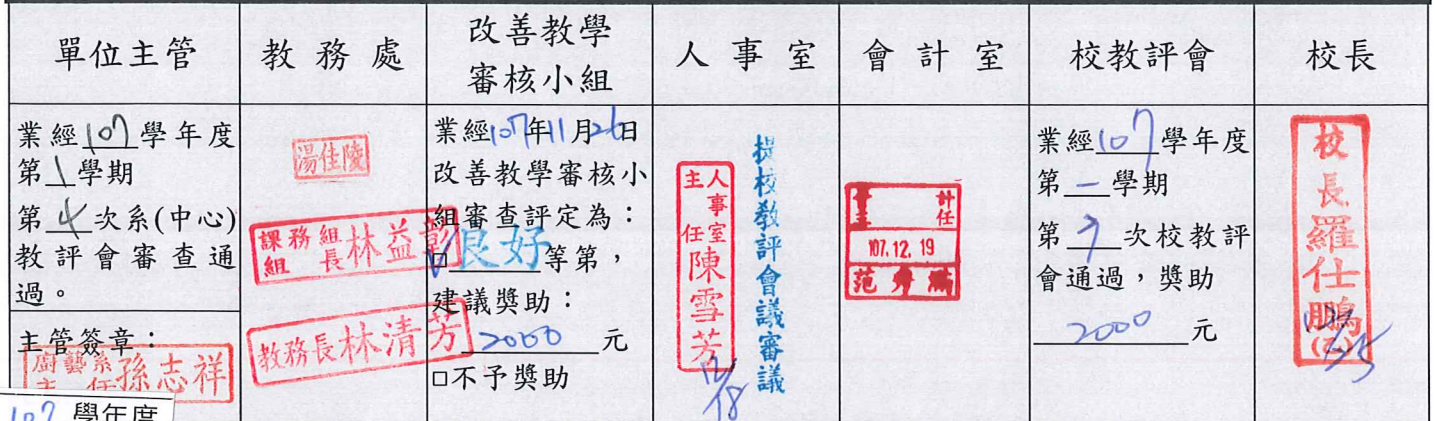 單位主管
教務處
改善教學
審核小組
人事室
會計室
校教評會
校長
業經107學年度
第1學期
第4次系(中心)
教評會審查通
過。
主管簽章:
廚藝系
主任
孫志祥
107學年度
湯佳陵
課務組
組長
林益彰
教務長林清芳
業經107年11月26日
改善教學審核小
組審查評定為:
□良好等第,
建議獎助:
2000元
□不予獎助
提校教評會議審議
人事室
主任
陳雪芳
12/18
107.12.19
業經107學年度
第一學期
第7次校教評
會通過,獎助
2000元
校長羅仕鵬